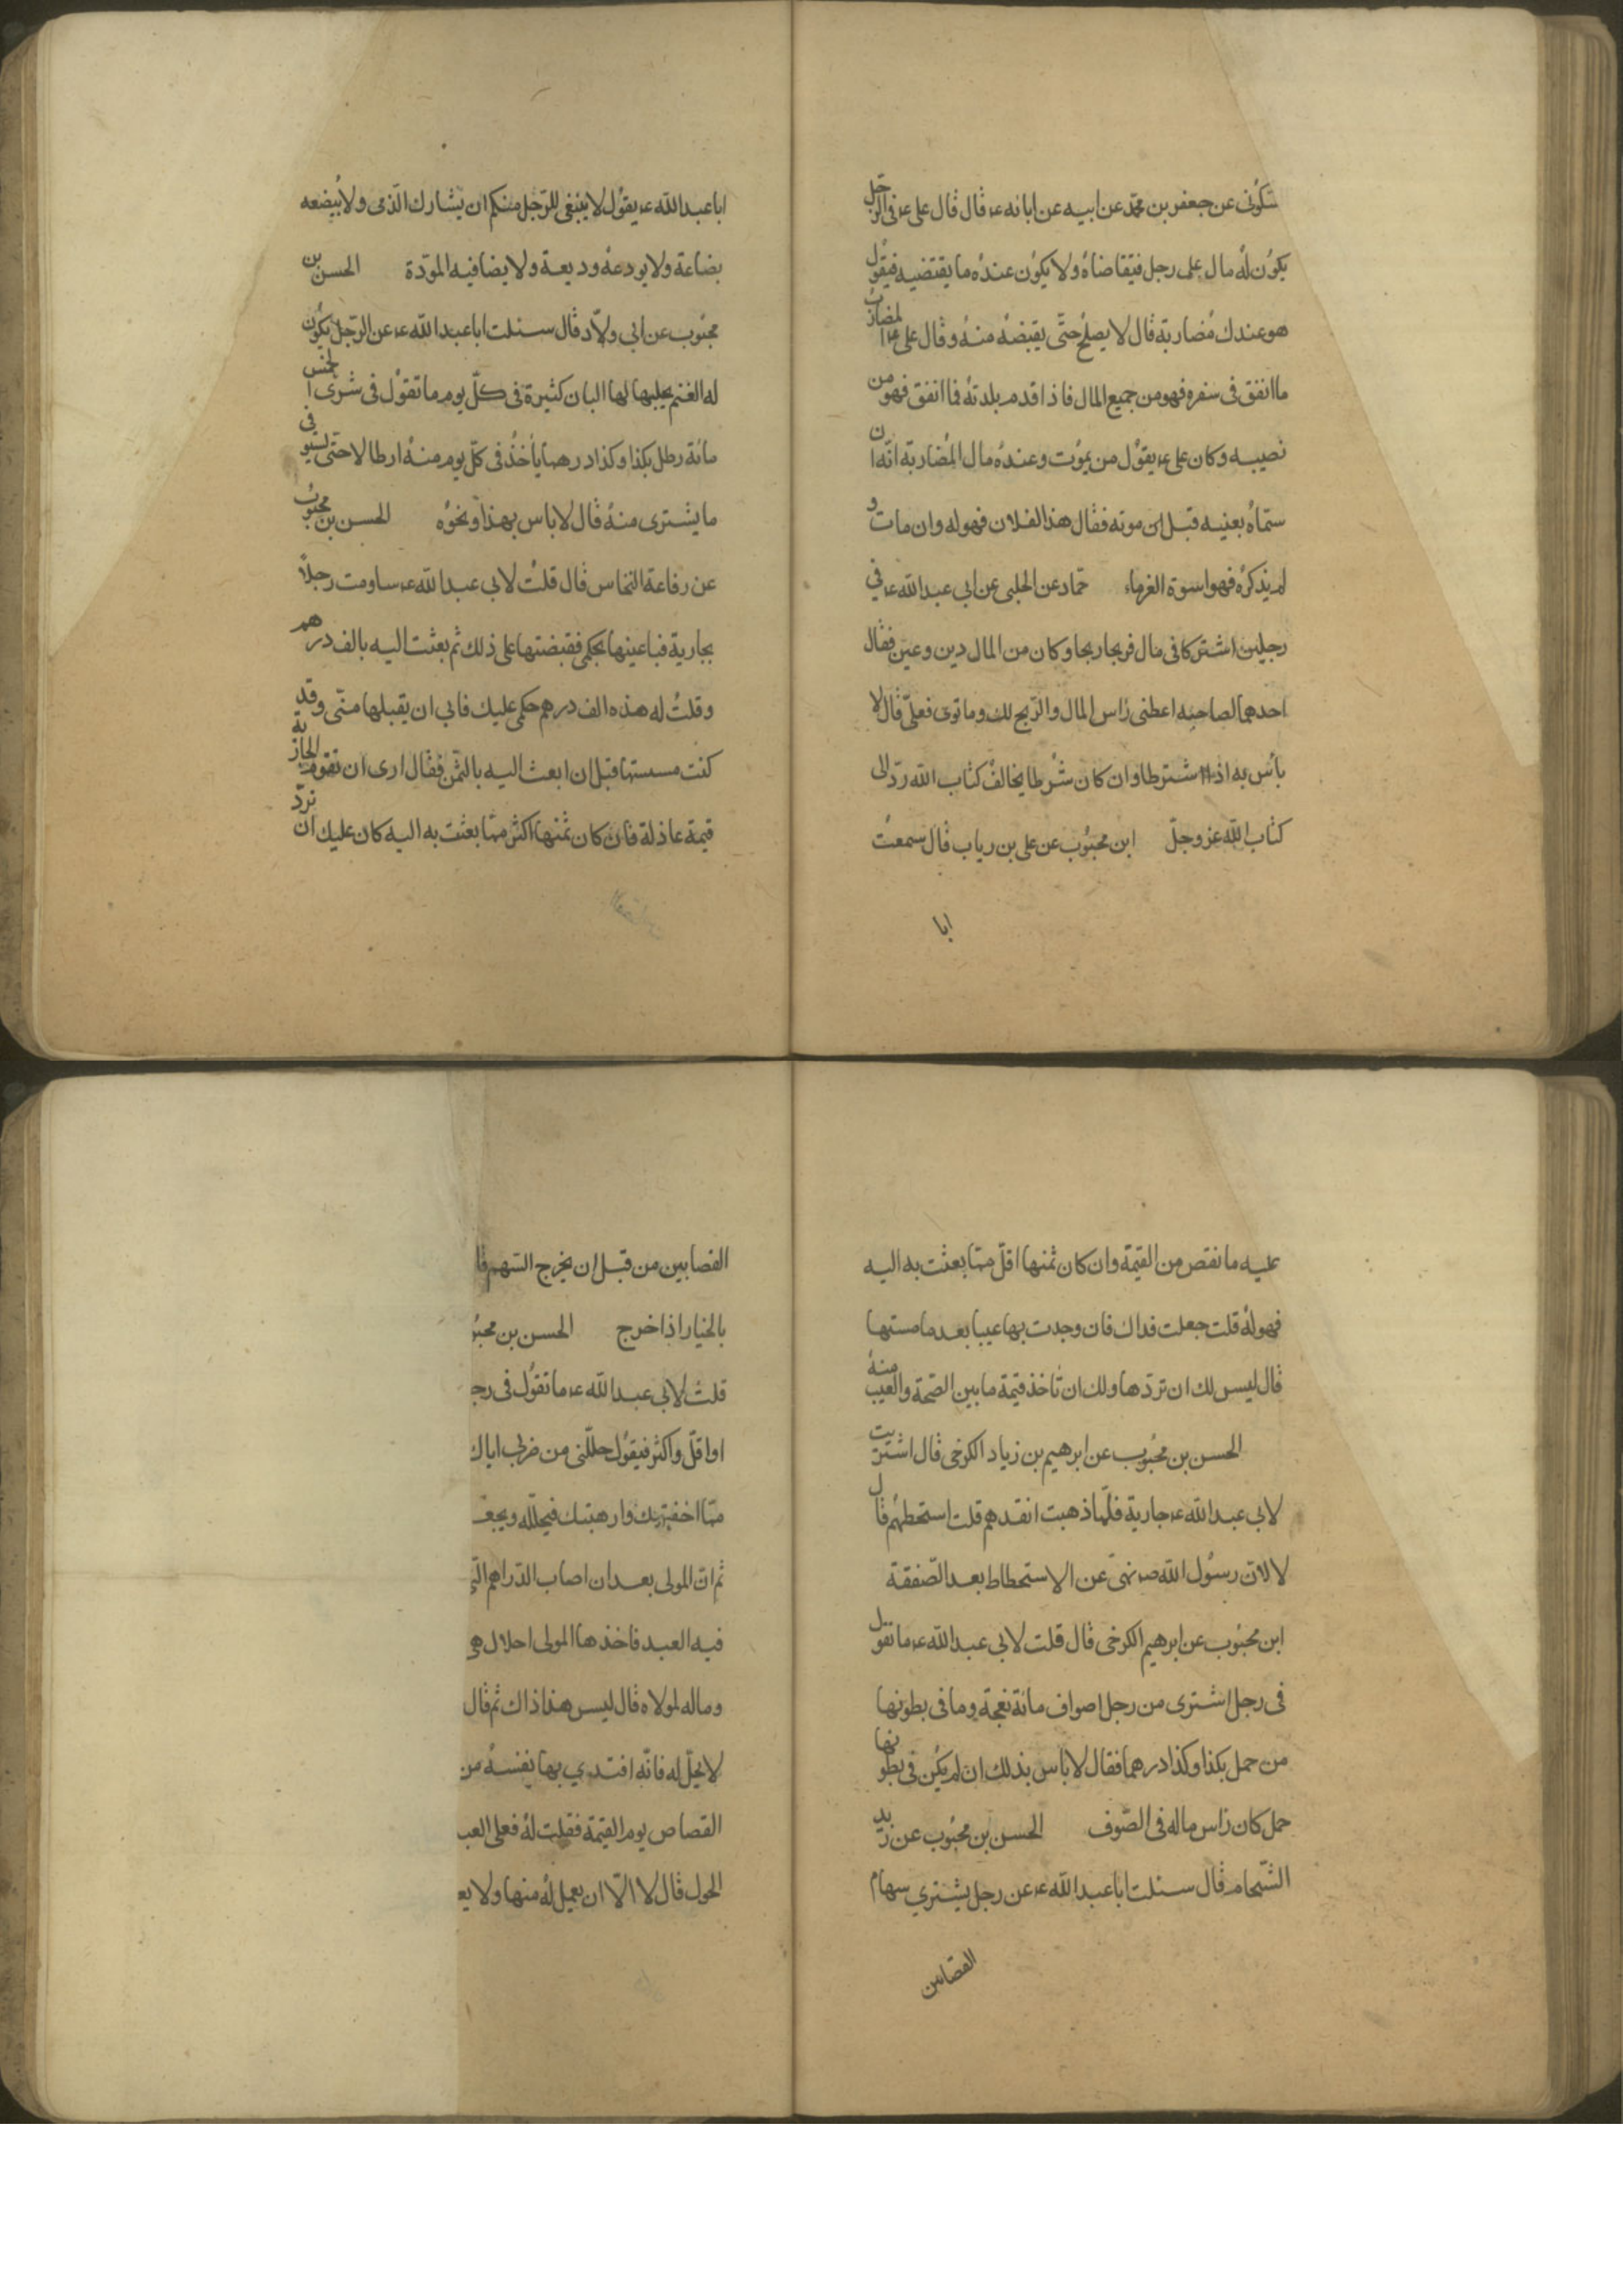 سكوني عن جعفر بن محمد عن ابيه عن ابائه ع قال قال علي ع في الرجل
يكون له مال على رجل فيتقاضاه ولا يكون عنده ما يقتضيه فيقول
هو عندك مضاربة قال لا يصلح حتى يقبضه منه وقال علي ع المضارب
ما انفق في سفره فهو من جميع المال فاذا قدم بلدته فما انفق فهو من
نصيبه وكان علي ع يقول من يموت وعنده مال المضاربة انه ان
سماه بعنيه قبل موته فقال هذا لفلان فهو له وان مات و
لم يذكره فهو اسوة الغرماء حماد عن الحلبي عن ابي عبد الله ع في
رجلين اشتركا في مال فربحا ربحا وكان من المال دين وعين فقال
احدهما لصاحبه اعطني راس المال والربح لك وما توى فعلي قال لا
بأس به اذا اشترطا وان كان شرطا يخالف كتاب الله رد الى
كتاب الله عز وجل ابن محبوب عن علي بن رياب قال سمعت
ابا
ابا عبد الله ع يقول لا ينبغي للرجل منكم ان يشارك الذمي ولا يبضعه
بضاعة ولا يودعه وديعة ولا يصافيه المودة الحسن بن
محبوب عن ابي ولاد قال سئلت ابا عبد الله ع عن الرجل يكون
له الغنم يحلبها لها البان كثيرة في كل يوم ما تقول في شرى الخمس
مائة رطل بكذا وكذا درهما يأخذ في كل يوم منه ارطالا حتى يستوفي
ما يشترى منه قال لا باس بهذا ونحوه الحسن بن محبوب
عن رفاعة النخاس قال قلت لابي عبد الله ع ساومت رجلا
بجارية فباعنيها بحكمي فقبضتها على ذلك ثم بعثت اليه بالف درهم
وقلت له هذه الف درهم حكمي عليك فابي ان يقبلها مني وقد
كنت مسستها قبل ان ابعث اليه بالثمن فقال ارى ان تقوم الجارية
قيمة عادلة فان كان ثمنها اكثر مما بعثت به اليه كان عليك ان ترد
عليه ما نقص من القيمة وان كان ثمنها اقل مما بعثت به اليه
فهو له قلت جعلت فداك فان وجدت بها عيبا بعد ما مستها
قال ليس لك ان تردها ولك ان تاخذ قيمة ما بين الصحة والعيب منه
الحسن بن محبوب عن ابرهيم بن زياد الكرخي قال اشتريت
لابي عبد الله ع جارية فلما ذهبت انقدهم قلت استحطهم قال
لا لان رسول الله ص نهى عن الاستحطاط بعد الصفقة
ابن محبوب عن ابرهيم الكرخي قال قلت لابي عبد الله ع ما تقول
في رجل اشترى من رجل اصواف مائة نعجة وما في بطونها
من حمل بكذا وكذا درهما فقال لا باس بذلك ان لم يكن في بطونها
حمل كان راس ماله في الصوف الحسن بن محبوب عن زيد
الشحام قال سئلت ابا عبد الله ع عن رجل يشتري سهام
القصابين
القصابين من قبل ان يخرج السهم قا
بالخيار اذا خرج الحسن بن محبو
قلت لابي عبد الله ع ما تقول في رجـ
او اقل واكثر فيقول حللني من ضربي اياك
مما اخفتك وارهبتك فيحلله ويجعـ
ثم ان المولى بعد ان اصاب الدراهم التي
فيه العبد فاخذها المولى احلال هي
وماله لمولاه قال ليس هذا ذاك ثم قال
لا يحل له فانه افتدي بها نفسه من
القصاص يوم القيمة فقلت له فعلى العبـ
الحول قال لا الا ان يعمل له منها ولا يعـ